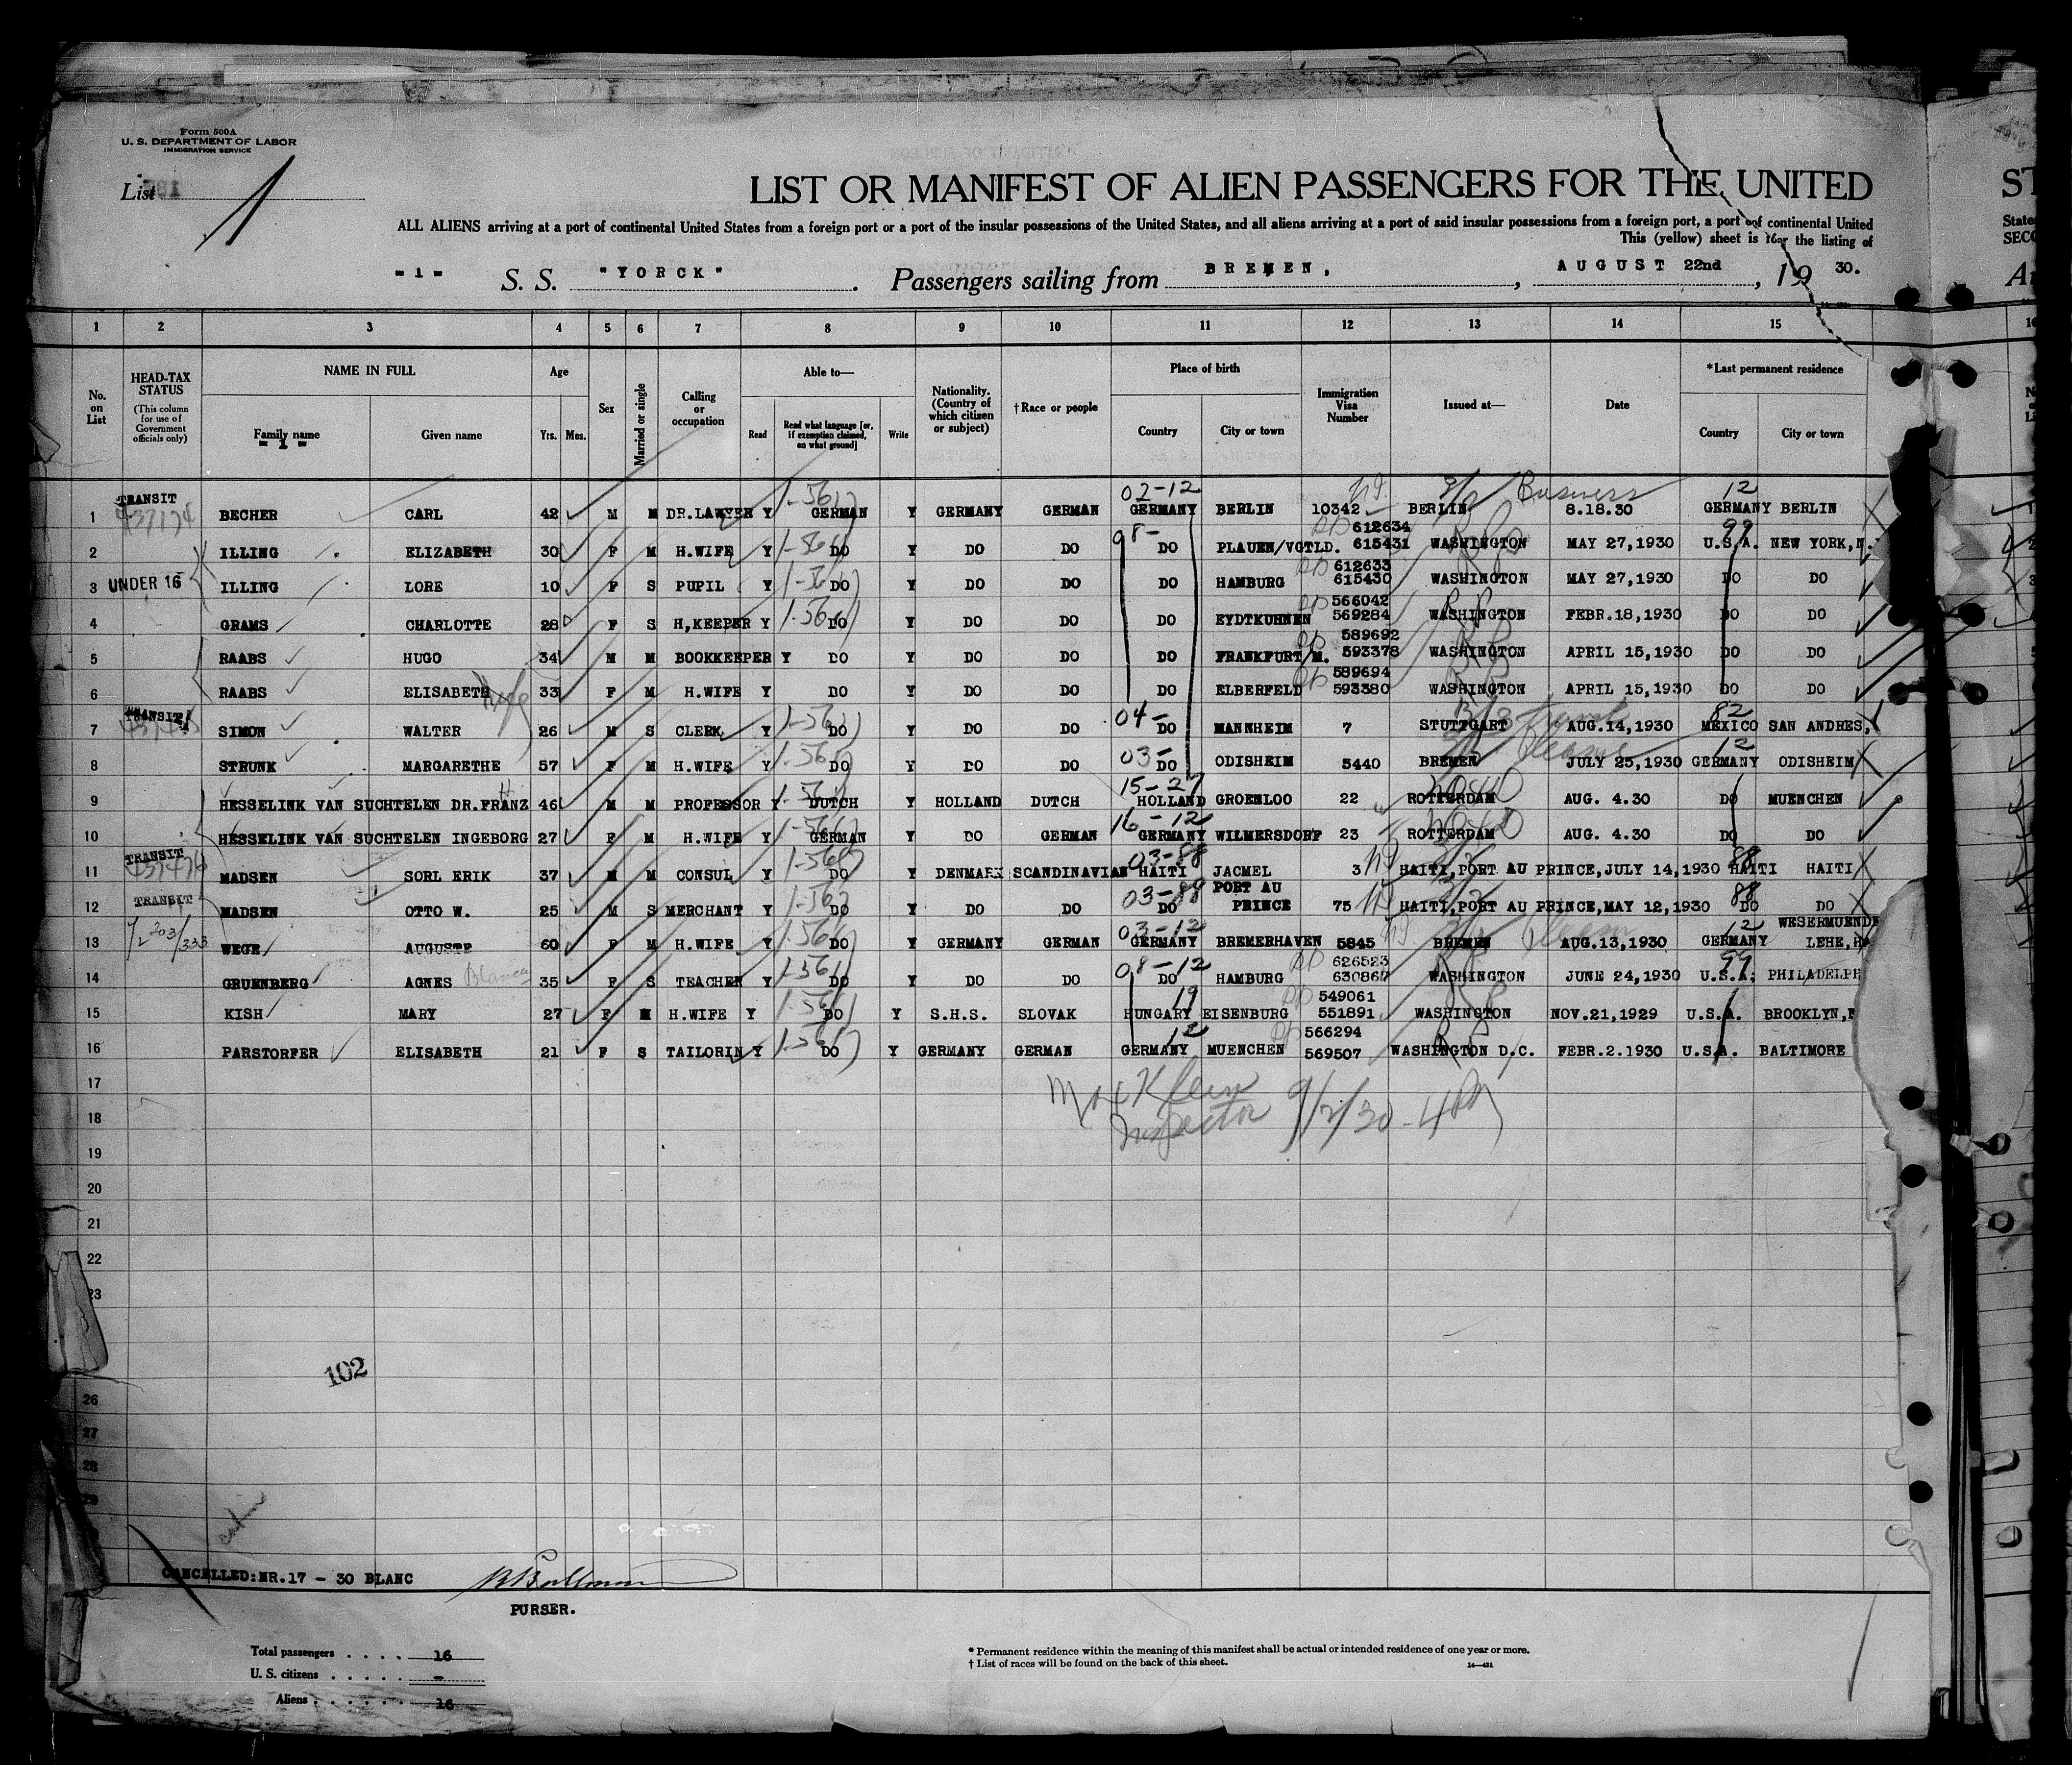 Form 500A
U. S. DEPARTMENT OF LABOR
IMMIGRATION SERVICE
List 1
LIST OR MANIFEST OF ALIEN PASSENGERS FOR THE UNITED
ALL ALIENS arriving at a port of continental United States from a foreign port or a port of the insular possessions of the United States, and all aliens arriving at a port of said insular possessions from a foreign port, a port of continental United
This (yellow) sheet is for the listing of
- 1 - S. S. "YORCK". Passengers sailing from BREMEN, AUGUST 22nd, 19 30.
1 2 3 4 5 6 7 8 9 10 11 12 13 14 15
No. on List
HEAD-TAX STATUS (This column for use of Government officials only)
NAME IN FULL
Family name - 1 -
Given name
Age
Yrs. Mos.
Sex
Married or single
Calling or occupation
Able to—
Read
Read what language [or, if exemption claimed, on what ground]
Write
Nationality. (Country of which citizen or subject)
† Race or people
Place of birth
Country
City or town
Immigration Visa Number
Issued at—
Date
*Last permanent residence
Country
City or town
02-12 Business 12
1 TRANSIT BECHER CARL 42 M M DR.LAWYER Y GERMAN Y GERMANY GERMAN GERMANY BERLIN 10342 BERLIN 8.18.30 GERMANY BERLIN
98- 612634 99
2 ILLING ELIZABETH 30 F M H.WIFE Y DO Y DO DO DO PLAUEN/VGTLD. 615431 WASHINGTON MAY 27,1930 U.S.A. NEW YORK,N.
612633
3 UNDER 16 ILLING LORE 10 F S PUPIL Y DO Y DO DO DO HAMBURG 615430 WASHINGTON MAY 27,1930 DO DO
566042
4 GRAMS CHARLOTTE 28 F S H,KEEPER Y DO Y DO DO DO EYDTKUHNEN 569284 WASHINGTON FEBR.18,1930 DO DO
589692
5 RAABS HUGO 34 M M BOOKKEEPER Y DO Y DO DO DO FRANKFURT/M. 593378 WASHINGTON APRIL 15,1930 DO DO
589694
6 RAABS ELISABETH wife 33 F M H.WIFE Y DO Y DO DO DO ELBERFELD 593380 WASHINGTON APRIL 15,1930 DO DO
04- 82
7 TRANSIT SIMON WALTER 26 M S CLERK Y DO Y DO DO DO MANNHEIM 7 STUTTGART AUG.14,1930 MEXICO SAN ANDRES,
03- Pleasure 12
8 STRUNK MARGARETHE 57 F M H.WIFE Y DO Y DO DO DO ODISHEIM 5440 BREMEN JULY 25,1930 GERMANY ODISHEIM
15-27
9 HESSELINK VAN SUCHTELEN DR.FRANZ 46 M M PROFESSOR Y DUTCH Y HOLLAND DUTCH HOLLAND GROENLOO 22 ROTTERDAM AUG. 4.30 DO MUENCHEN
16-12
10 HESSELINK VAN SUCHTELEN INGEBORG 27 F M H.WIFE Y GERMAN Y DO GERMAN GERMANY WILMERSDORF 23 ROTTERDAM AUG. 4.30 DO DO
03-88 88
11 TRANSIT MADSEN SORL ERIK 37 M M CONSUL Y DO Y DENMARK SCANDINAVIAN HAITI JACMEL 3 HAITI,PORT AU PRINCE,JULY 14,1930 HAITI HAITI
03-88 PORT AU 88
12 TRANSIT MADSEN OTTO W. 25 M S MERCHANT Y DO Y DO DO DO PRINCE 75 HAITI,PORT AU PRINCE,MAY 12,1930 DO DO
03-12 12 WESERMUENDE
13 WEGE AUGUSTE 60 F M H.WIFE Y DO Y GERMANY GERMAN GERMANY BREMERHAVEN 5845 BREMEN AUG.13,1930 GERMANY LEHE,
08-12 626523 99
14 GRUENBERG AGNES Blanca 35 F S TEACHER Y DO Y DO DO DO HAMBURG 630867 WASHINGTON JUNE 24,1930 U.S.A. PHILADELPH
19 549061
15 KISH MARY 27 F M H.WIFE Y DO Y S.H.S. SLOVAK HUNGARY EISENBURG 551891 WASHINGTON NOV.21,1929 U.S.A. BROOKLYN,
12 566294
16 PARSTORFER ELISABETH 21 F S TAILORIN Y DO Y GERMANY GERMAN GERMANY MUENCHEN 569507 WASHINGTON D.C. FEBR.2.1930 U.S.A. BALTIMORE
17
Max Klein
18
Inspector 9/2/30 - 4 PM
19
20
21
22
23
102
26
27
28
29
CANCELLED:NR.17 - 30 BLANC
PURSER.
Total passengers 16
U. S. citizens -
Aliens 16
* Permanent residence within the meaning of this manifest shall be actual or intended residence of one year or more.
† List of races will be found on the back of this sheet.
14—421